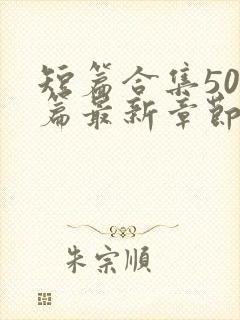 短篇合集50
篇最新章節
朱宗順